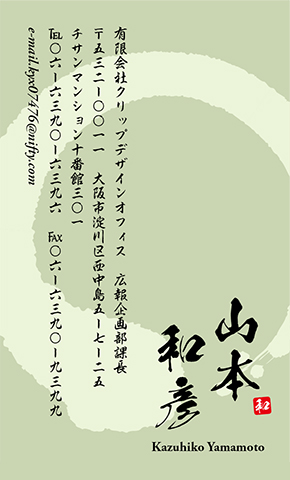 山本
和彦
和
Kazuhiko Yamamoto
有限会社クリップデザインオフィス　広報企画部課長
〒五三二-〇〇一一　大阪市淀川区西中島五-七-二五
チサンマンション十番館三〇一
℡〇六-六三九〇-六三九六　FAX〇六-六三九〇-九三九九
e-mail.kyx07476@nifty.com